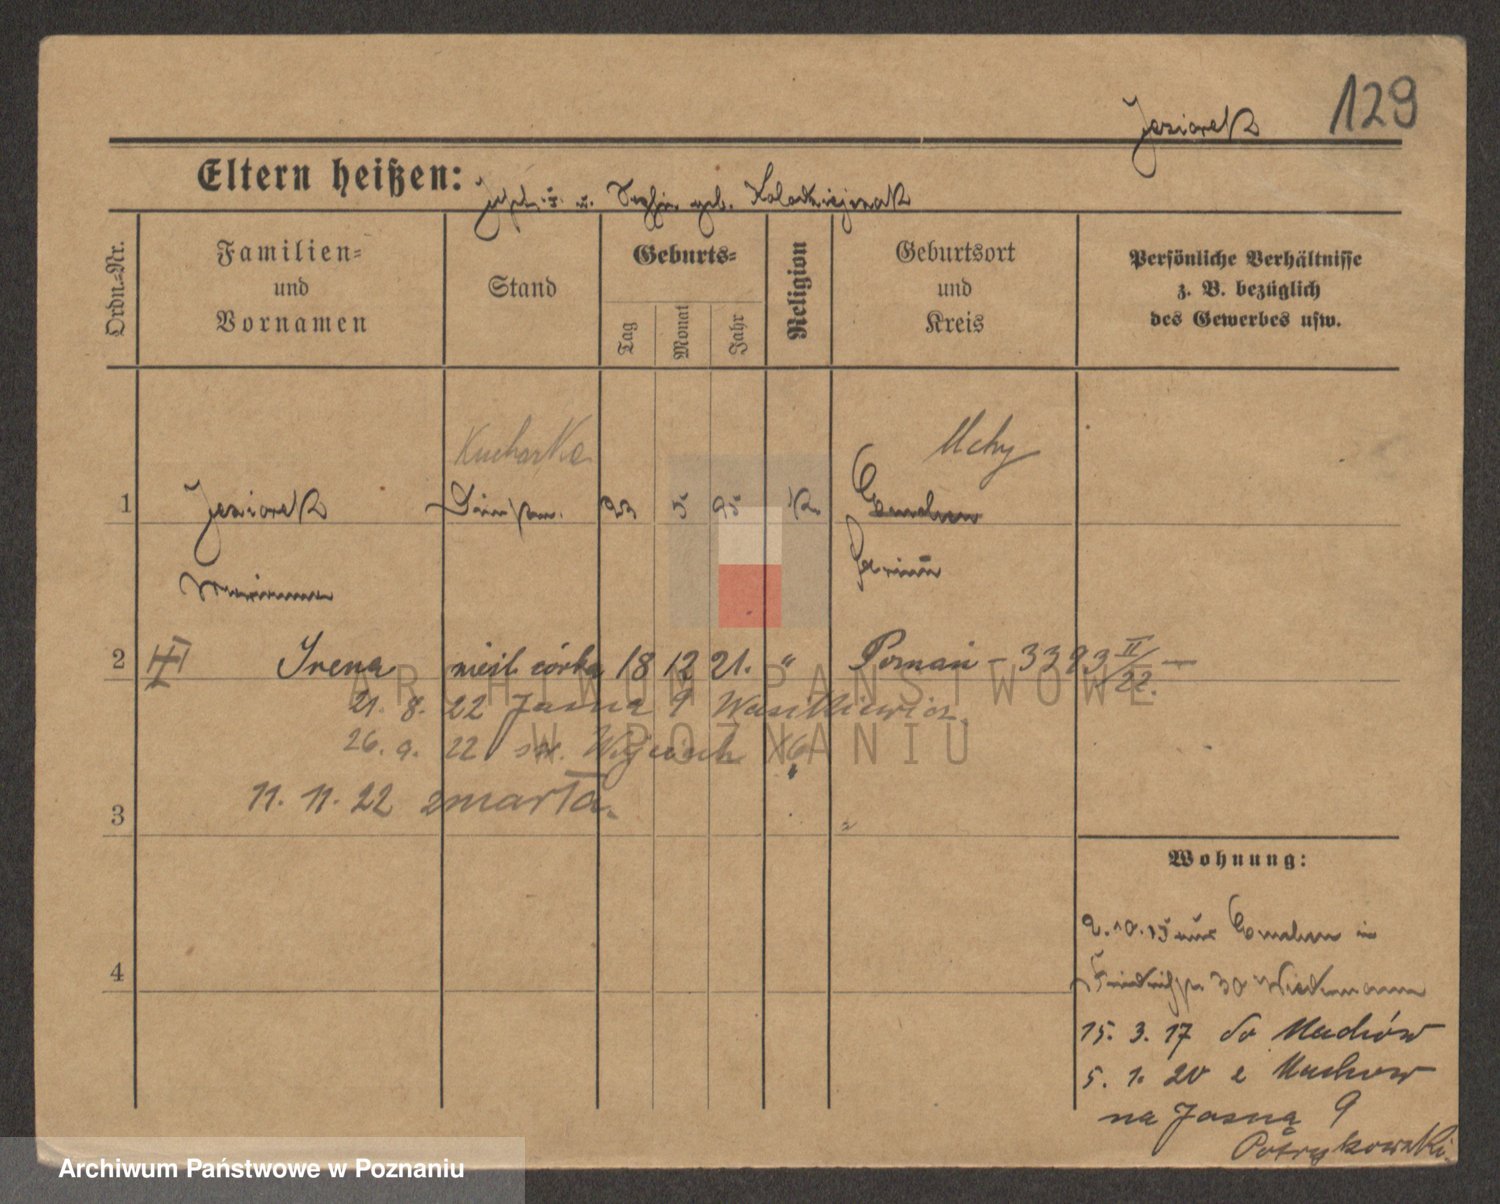 129
Jeziorek
Eltern heißen: Joseph u. geb. Kolodziejczak
Ordn.-Nr.
Familien= und Vornamen
Stand
Geburts=
Tag
Monat
Jahr
Religion
Geburtsort und Kreis
Persönliche Verhältnisse z. B. bezüglich des Gewerbes usw.
Kucharka
Mchy
1 Jeziorek 23 5 95 K.
Marianna
Schrimm
2 Irena nieśl. córka 18 12 21. " Poznań – 3393 II/22. –
21. 8. 22 Jasna 9 Wasilkiewicz.
26. 9. 22 św. Wojciech 16
11. 11. 22 zmarła.
3
4
Wohnung:
2.10.15 aus in
Friedrichstr. 30 Wiedemann
15. 3. 17 do Muchów
5. 1. 20 z Muchow
na Jasną 9
Potrykowski.
ARCHIWUM PAŃSTWOWE
W POZNANIU
Archiwum Państwowe w Poznaniu